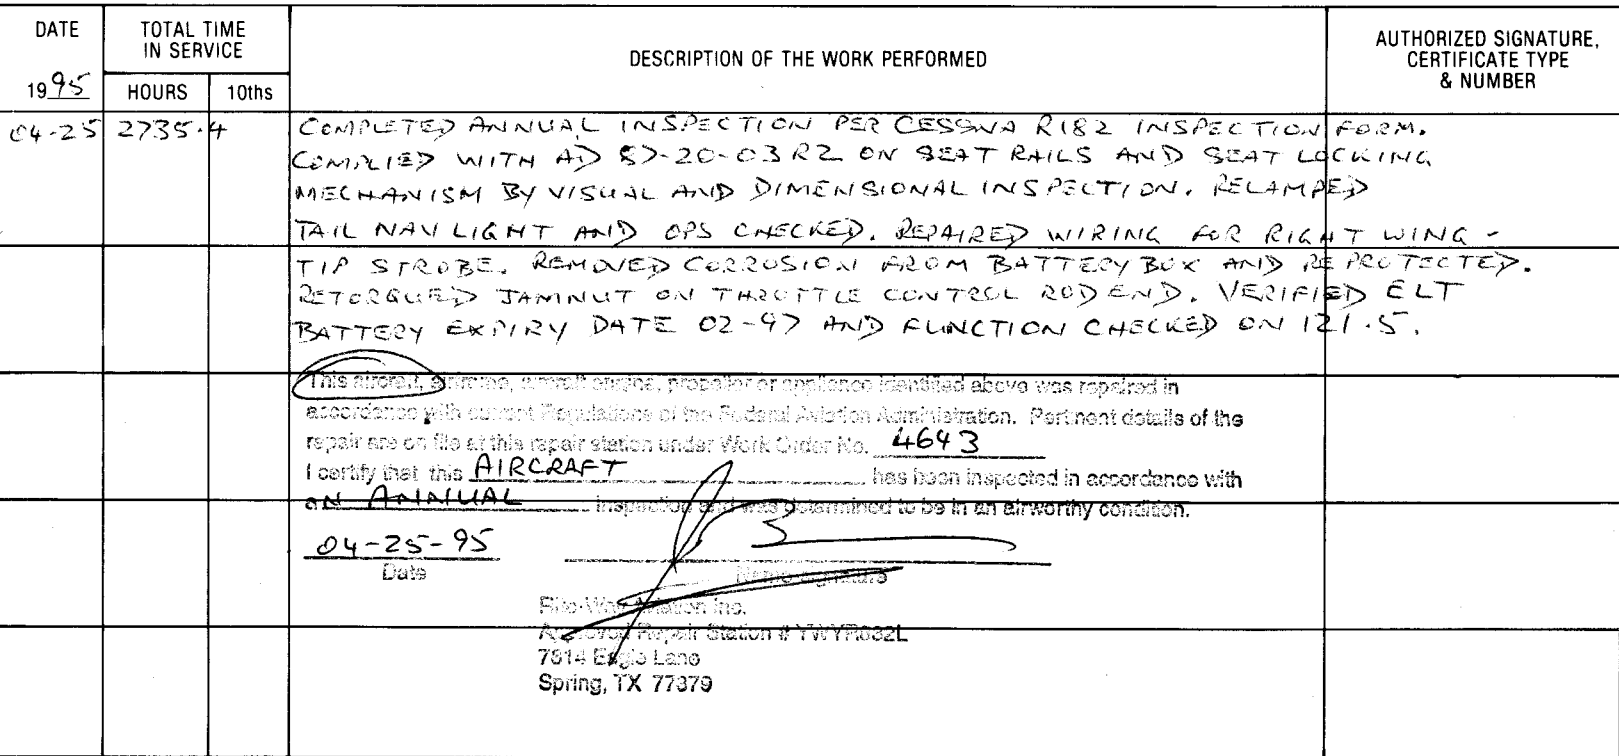 DATE
TOTAL TIME
IN SERVICE
DESCRIPTION OF THE WORK PERFORMED
AUTHORIZED SIGNATURE,
CERTIFICATE TYPE
& NUMBER
1995
HOURS
10ths
04-25 2735.4 COMPLETED ANNUAL INSPECTION PER CESSNA R182 INSPECTION FORM.
COMPLIED WITH AD 87-20-03 R2 ON SEAT RAILS AND SEAT LOCKING
MECHANISM BY VISUAL AND DIMENSIONAL INSPECTION. RELAMPED
TAIL NAV LIGHT AND OPS CHECKED. REPAIRED WIRING FOR RIGHT WING-
TIP STROBE. REMOVED CORROSION FROM BATTERY BOX AND REPROTECTED.
RETORQUED JAMNUT ON THROTTLE CONTROL ROD END. VERIFIED ELT
BATTERY EXPIRY DATE 02-97 AND FUNCTION CHECKED ON 121.5.
This aircraft, airframe, aircraft engine, propeller or appliance identified above was repaired in
accordance with current Regulations of the Federal Aviation Administration. Pertinent details of the
repair are on file at this repair station under Work Order No. 4643
I certify that this AIRCRAFT has been inspected in accordance with
an ANNUAL inspection and was determined to be in an airworthy condition.
04-25-95
Date
Aviation Inc.
Approved Repair Station #
7614 Eagle Lane
Spring, TX 77379